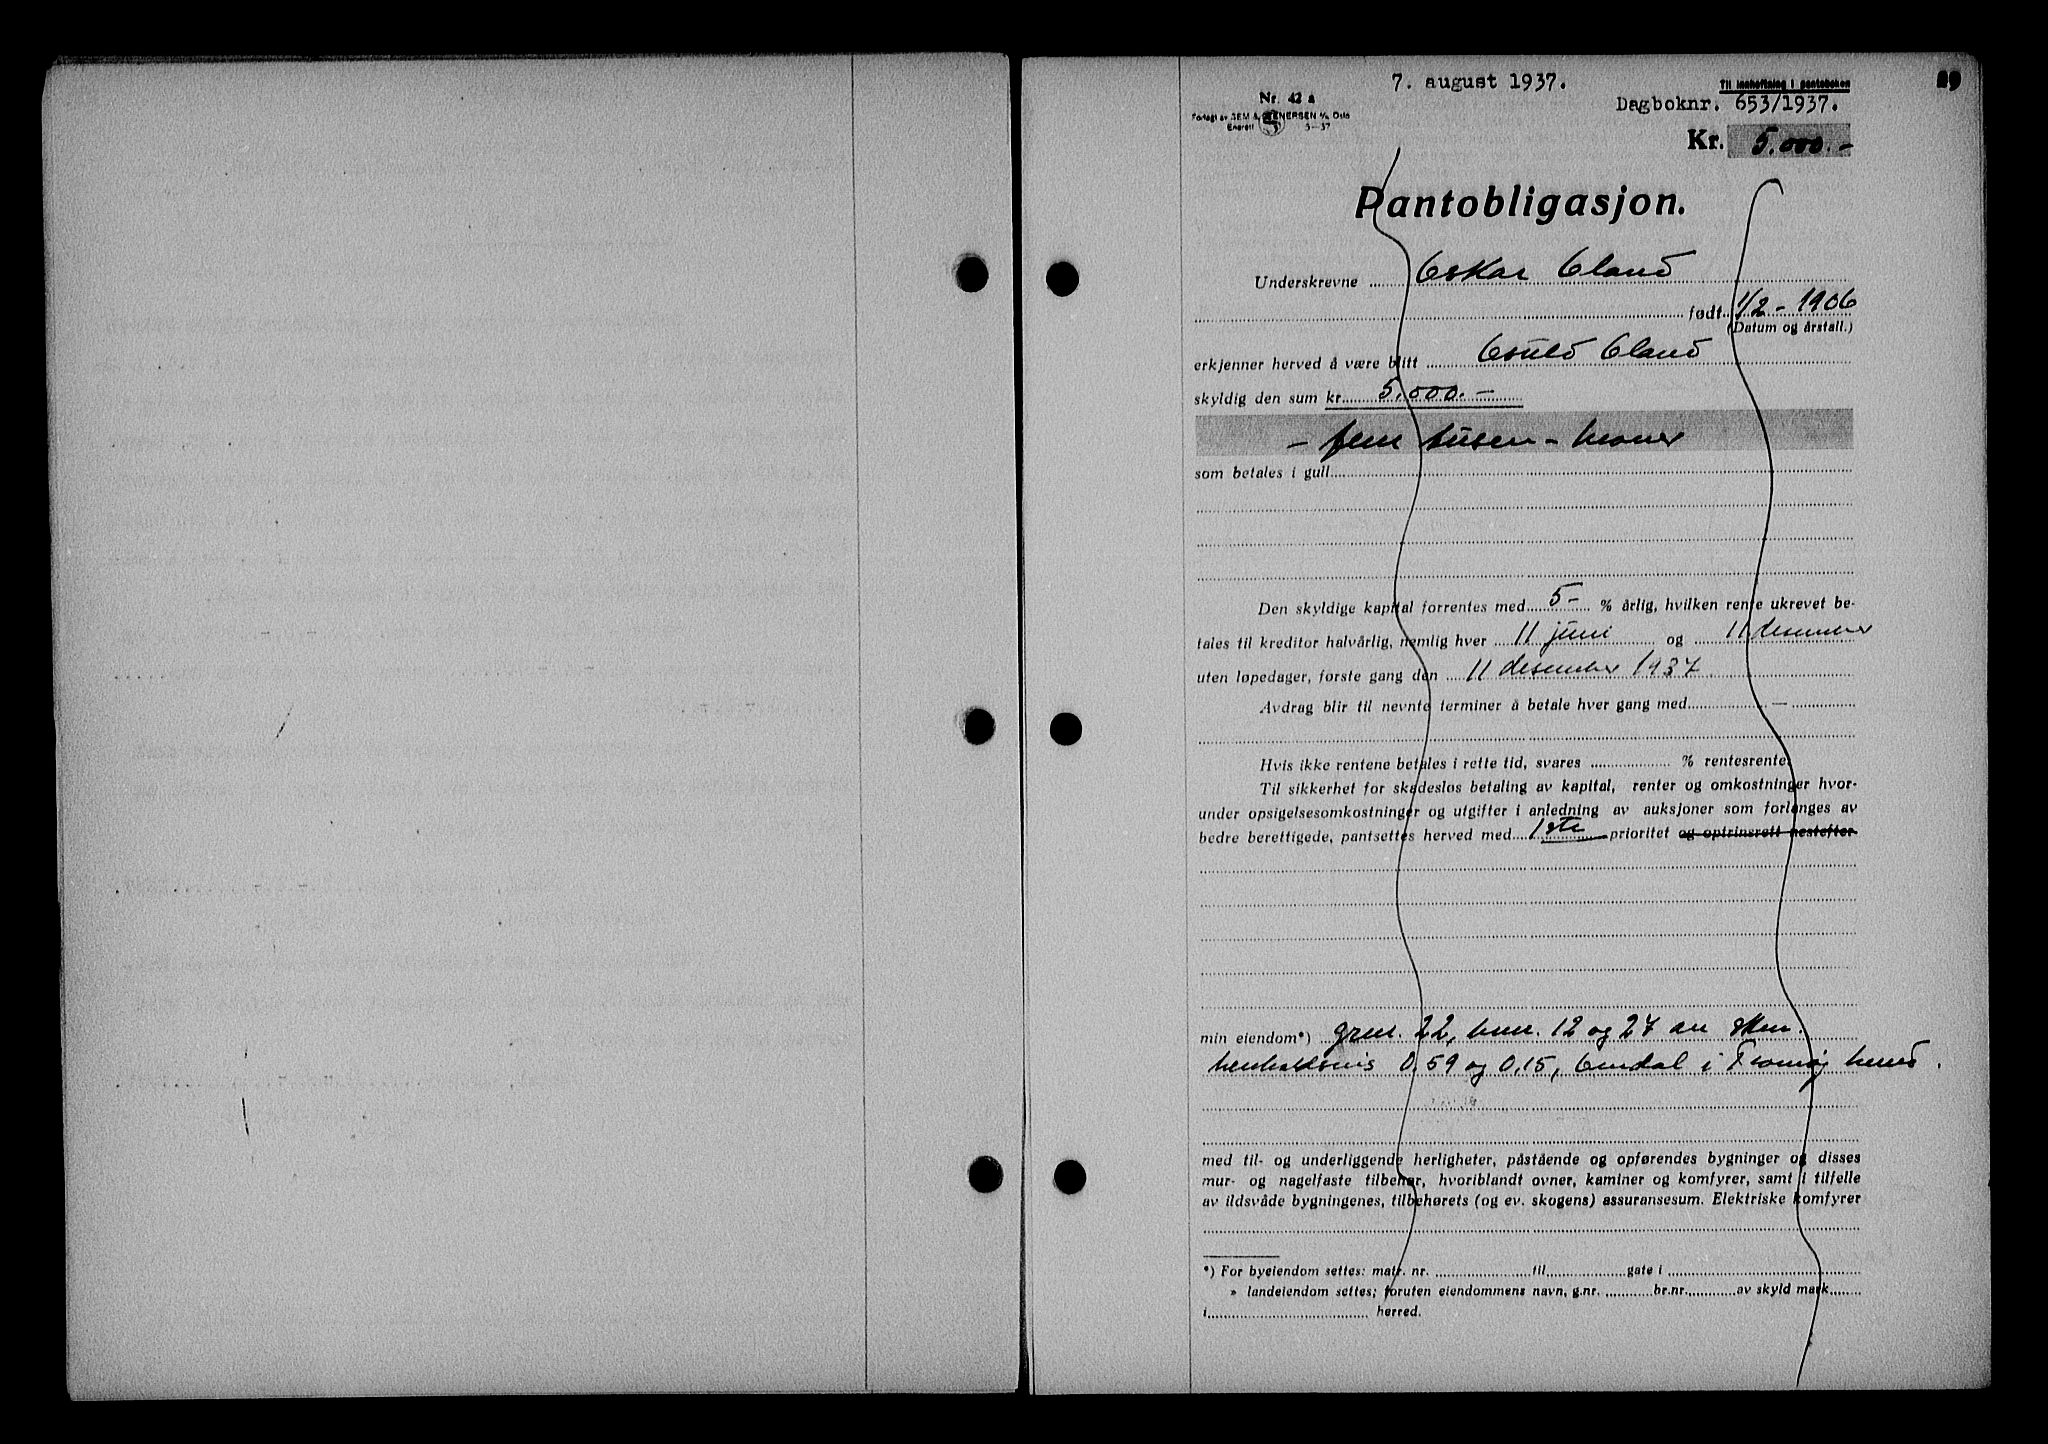 7. august 1937.
Til innheftning i panteboken
Nr. 42 a
Dagboknr. 653/1937.
Forlagt av SEM & STENERSEN A/S Oslo
Enerett 5-37
Kr. 5.000.-
Pantobligasjon.
Underskrevne Oskar Oland
født 1/2 - 1906
(Datum og årstall.)
erkjenner herved å være blitt Osuld Oland
skyldig den sum kr. 5.000.-
- fem tusen - kroner
som betales i gull
Den skyldige kapital forrentes med 5- % årlig, hvilken rente ukrevet be-
tales til kreditor halvårlig, nemlig hver 11 juni og 11 desember
uten løpedager, første gang den 11 desember 1937
Avdrag blir til nevnte terminer å betale hver gang med -
Hvis ikke rentene betales i rette tid, svares % rentesrente.
Til sikkerhet for skadesløs betaling av kapital, renter og omkostninger hvor-
under opsigelsesomkostninger og utgifter i anledning av auksjoner som forlanges av
bedre berettigede, pantsettes herved med 1ste prioritet og optrinsrett nestefter
min eiendom*) grnr. 22, bnr. 12 og 27 av skm.
henholdsvis 0,59 og 0,15, Omdal i Tromøy herred.
med til- og underliggende herligheter, påstående og opførendes bygninger og disses
mur- og nagelfaste tilbehør, hvoriblandt ovner, kaminer og komfyrer, samt i tilfelle
av ildsvåde bygningenes, tilbehørets (og ev. skogens) assuransesum. Elektriske komfyrer
*) For byeiendom settes: matr. nr. til gate i
» landeiendom settes; foruten eiendommens navn, g.nr. br.nr. av skyld mark
i herred.